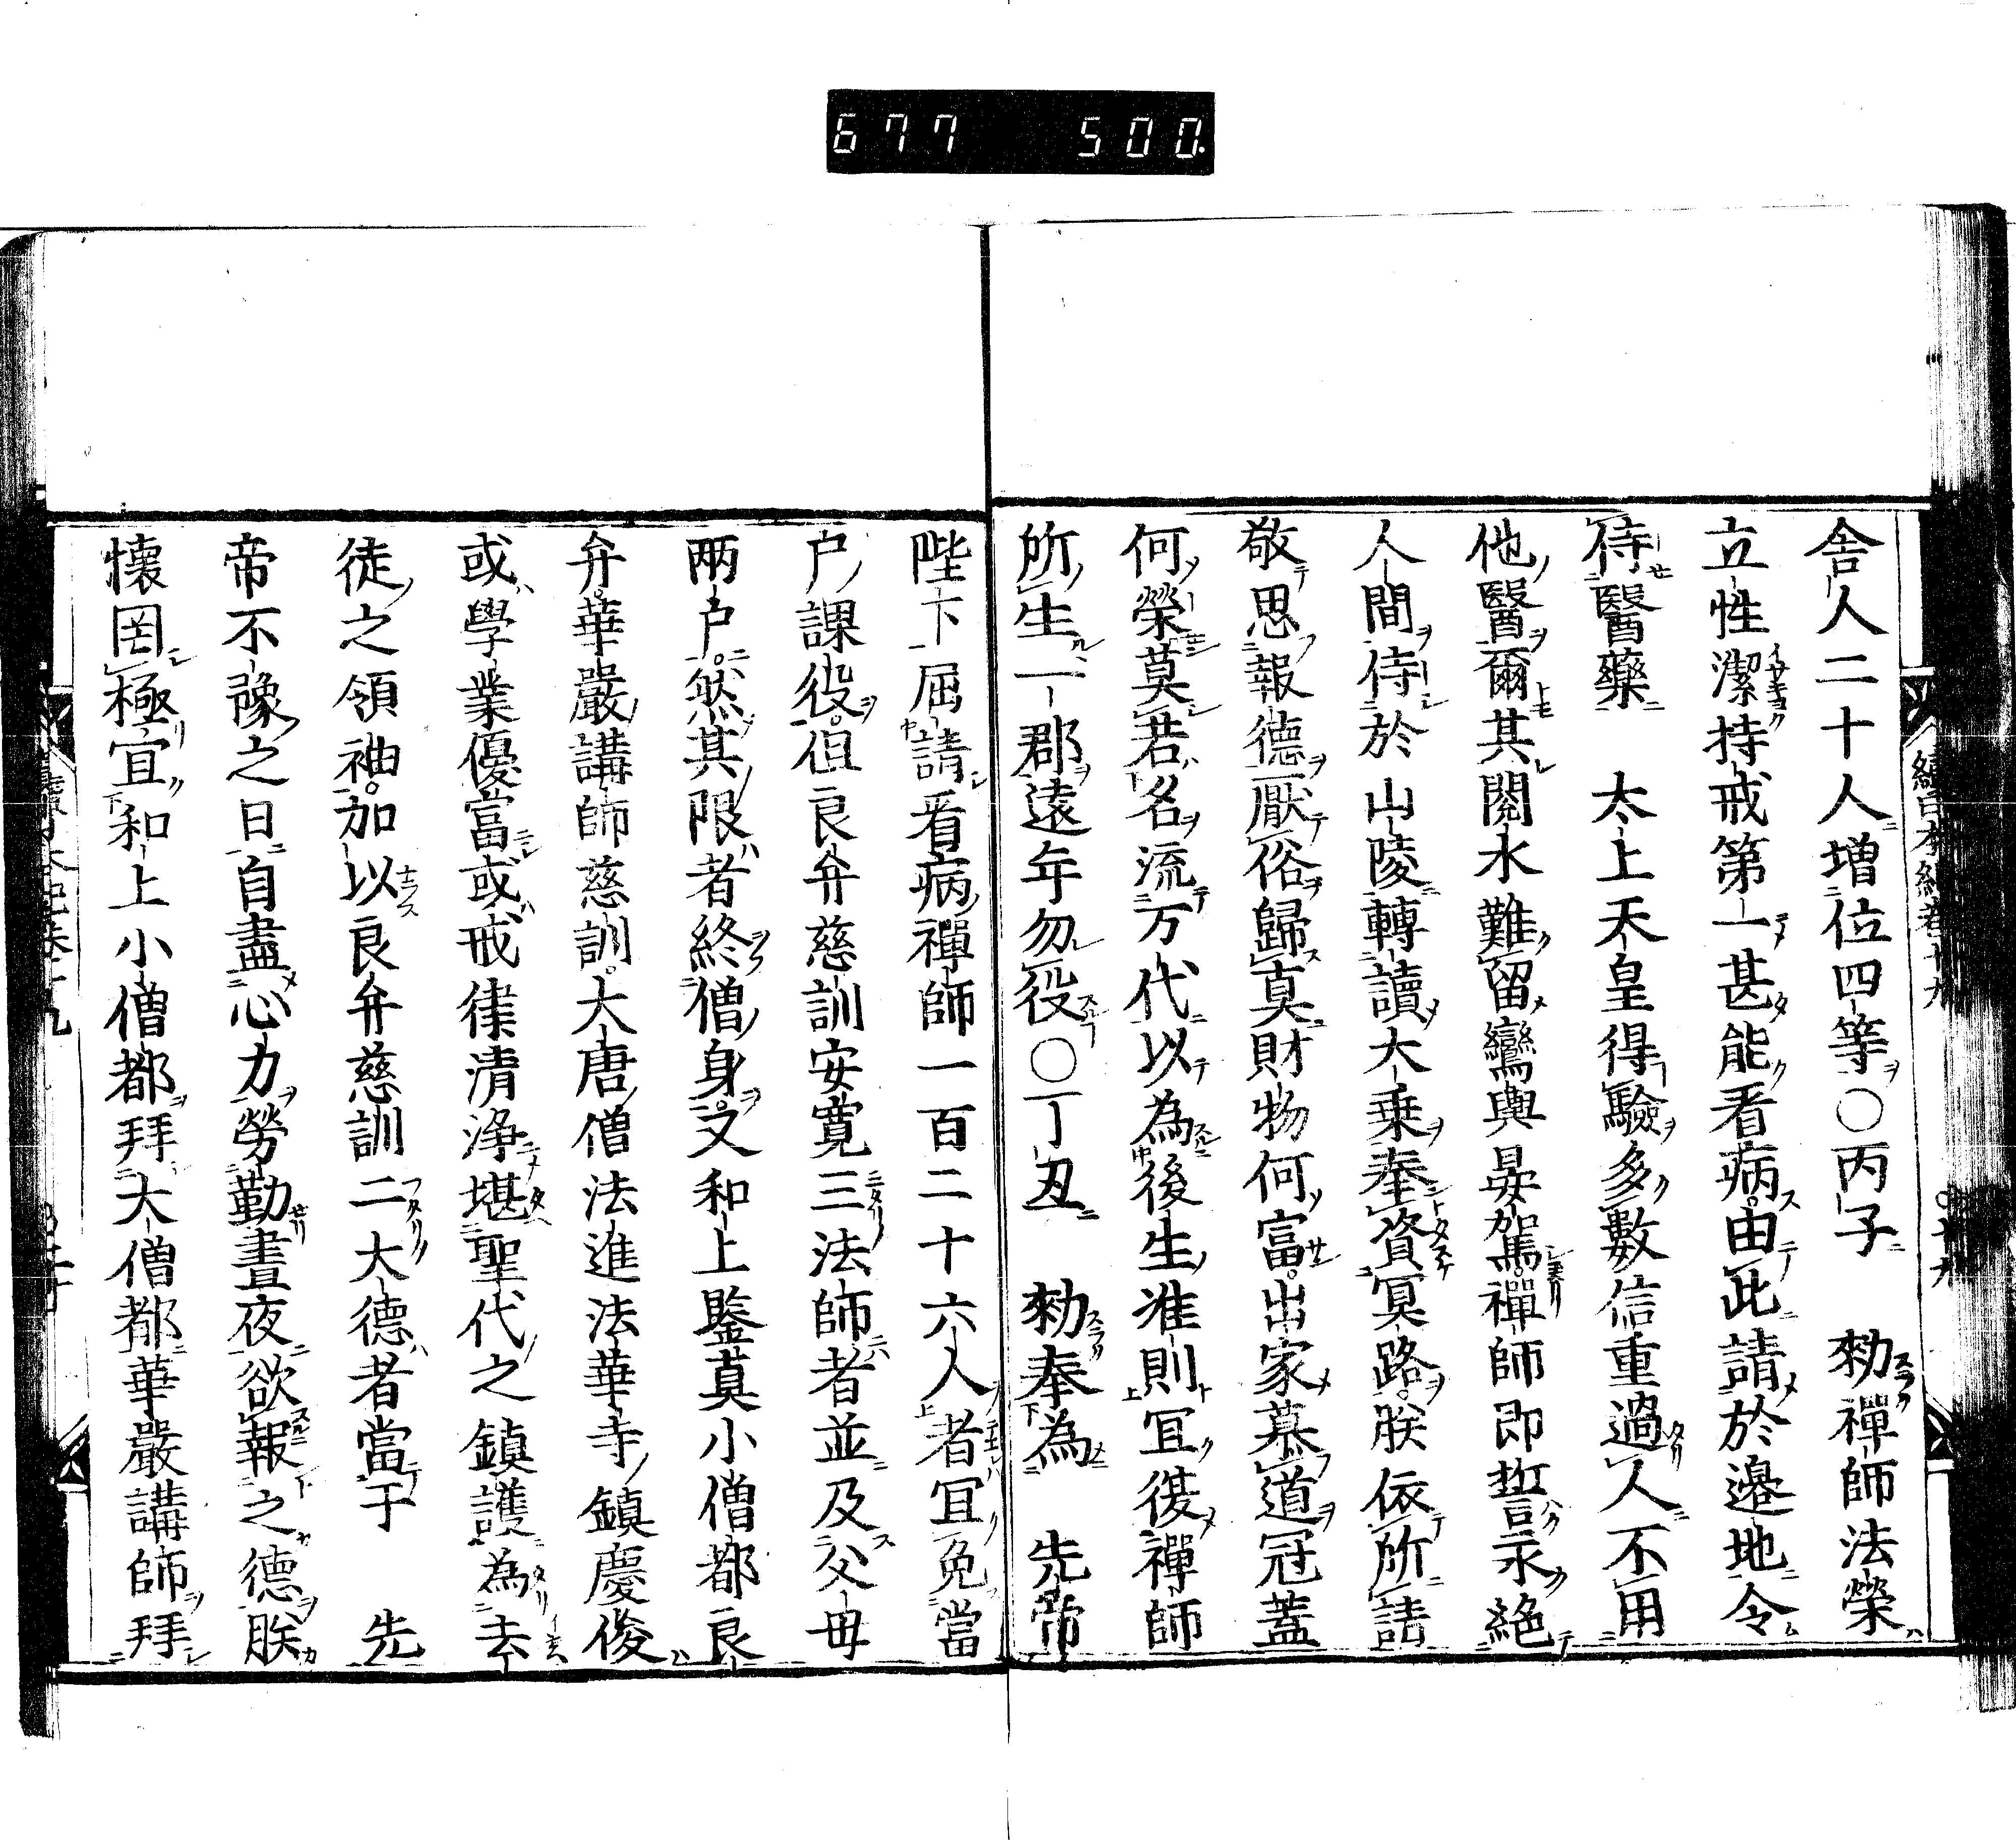 677 500.
續日本紀卷十九
舎人二十人增位四等○丙子 勑禪師法榮
立性潔持戒第一甚能看病由此請於邊地令
侍醫藥 太上天皇得驗多數信重過人不用
他醫爾其閱水難留鸞輿晏駕禪師即誓永絕
人間侍於山陵轉讀大乗奉資冥路朕依所請
敬思報德厭俗歸真財物何富出家慕道冠蓋
何榮莫若名流万代以為後生准則宜復禪師
所生一郡遠年勿役○丁丑 勑奉為 先帝
陛下屈請看病禪師一百二十六人者宜免當
户課役但良弁慈訓安寬三法師者並及父母
兩户然其限者終僧身又和上鑒真小僧都良
弁華嚴講師慈訓大唐僧法進法華寺鎮慶俊
或學業優富或戒律清淨堪聖代之鎮護為玄
徒之領袖加以良弁慈訓二大德者當于 先
帝不豫之日自盡心力勞勤晝夜欲報之德朕
懷罔極宜和上小僧都拜大僧都華嚴講師拜